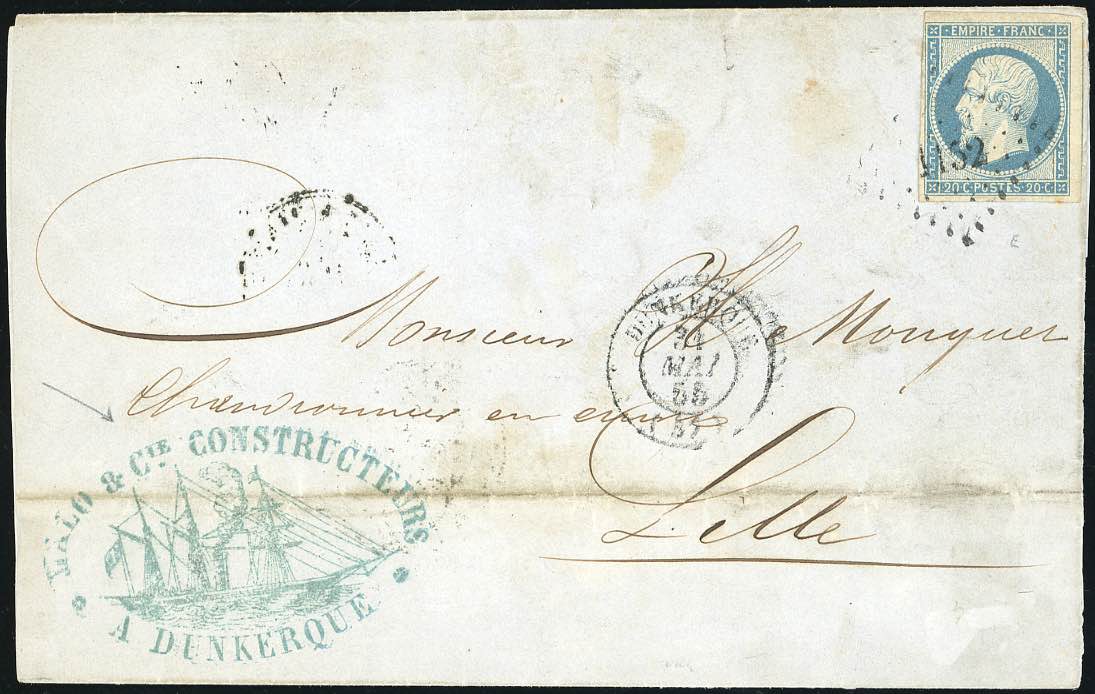 EMPIRE·FRANC·
1152
20·C·POSTES·20·C·
E
Monsieur H. Mouquet
DUNKERQUE
31
MAI
55
(57)
Chaudronnier en cuivre
Lille
LALO & CIE CONSTRUCTEURS
A DUNKERQUE